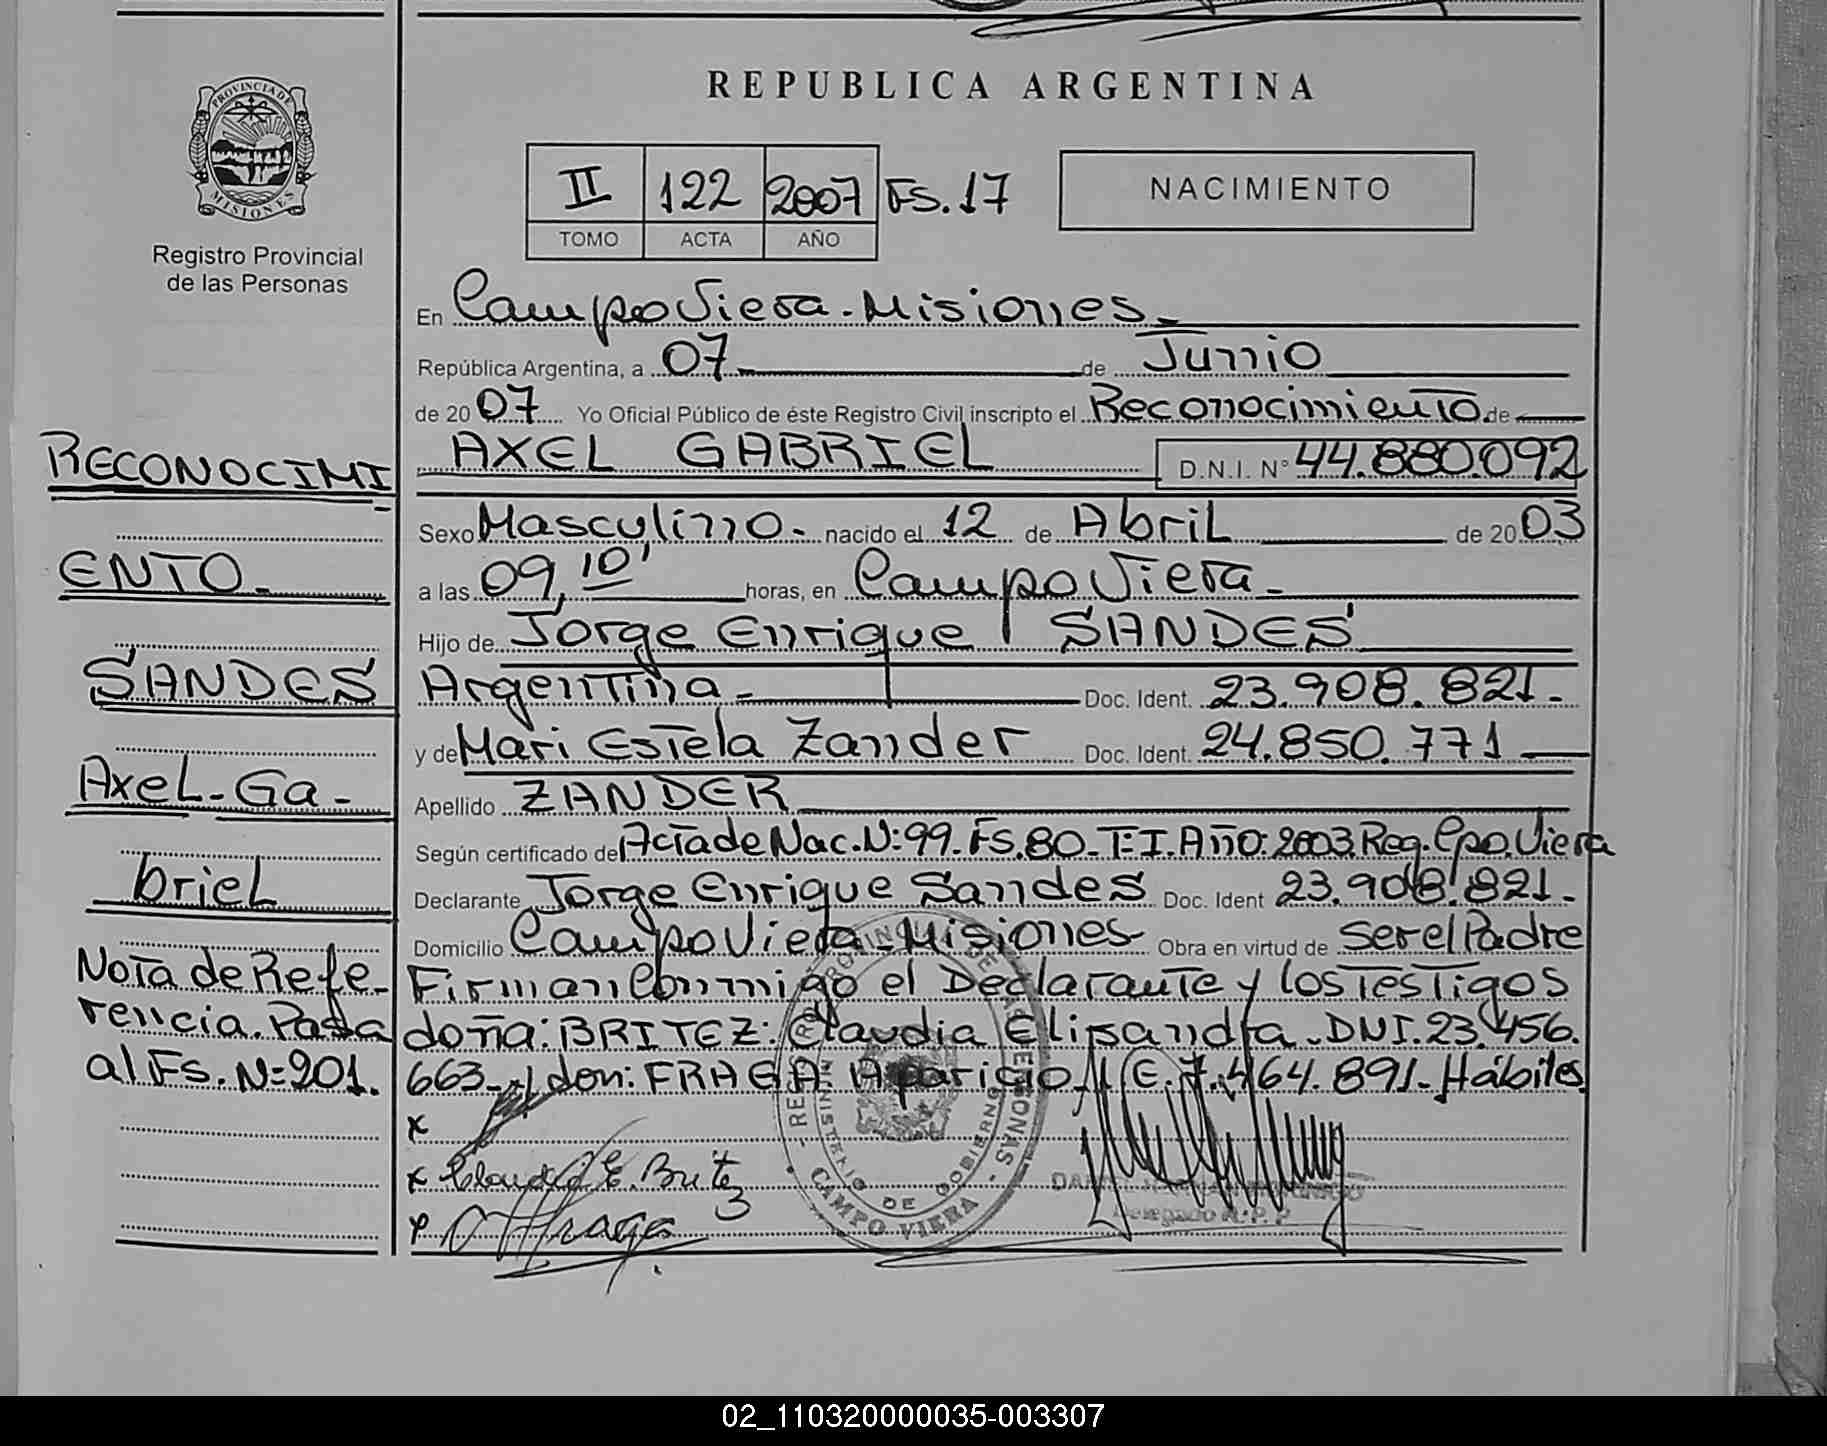 REPUBLICA ARGENTINA
PROVINCIA DE MISIONES
Registro Provincial
de las Personas
II 122 2007 FS.17
TOMO ACTA AÑO
NACIMIENTO
En Campo Viera - Misiones.
República Argentina, a 07 de Junio
de 2007 Yo Oficial Público de éste Registro Civil inscripto el Reconocimiento de
AXEL GABRIEL D.N.I. N° 44.880.092
Sexo Masculino - nacido el 12 de Abril de 2003
a las 09,10' horas, en Campo Viera -
Hijo de Jorge Enrique SANDES
Argentina - Doc. Ident. 23.908.821.-
y de Mari Estela Zander Doc. Ident. 24.850.771
Apellido ZANDER
Según certificado de Acta de Nac. N:99. Fs.80 - T:I. Año: 2003. Reg. Cpo. Viera
Declarante Jorge Enrique Sandes Doc. Ident 23.908.821.-
Domicilio Campo Viera - Misiones Obra en virtud de ser el Padre
Firman Conmigo el Declarante y los Testigos
doña: BRITEZ: Claudia Elisandra. DNI. 23.456.
663 - y don: FRAGA Aparicio L.E. 7.464.891. Hábiles.
x
x Claudia E. Britez
x Fraga
RECONOCIMI
ENTO -
SANDES
Axel - Ga -
briel
Nota de Refe-
rencia. Pasa
al Fs. N=201.
REGISTRO PROVINCIAL DE LAS PERSONAS
MINISTERIO DE GOBIERNO
CAMPO VIERA
Delegado R.P.P.
02_110320000035-003307